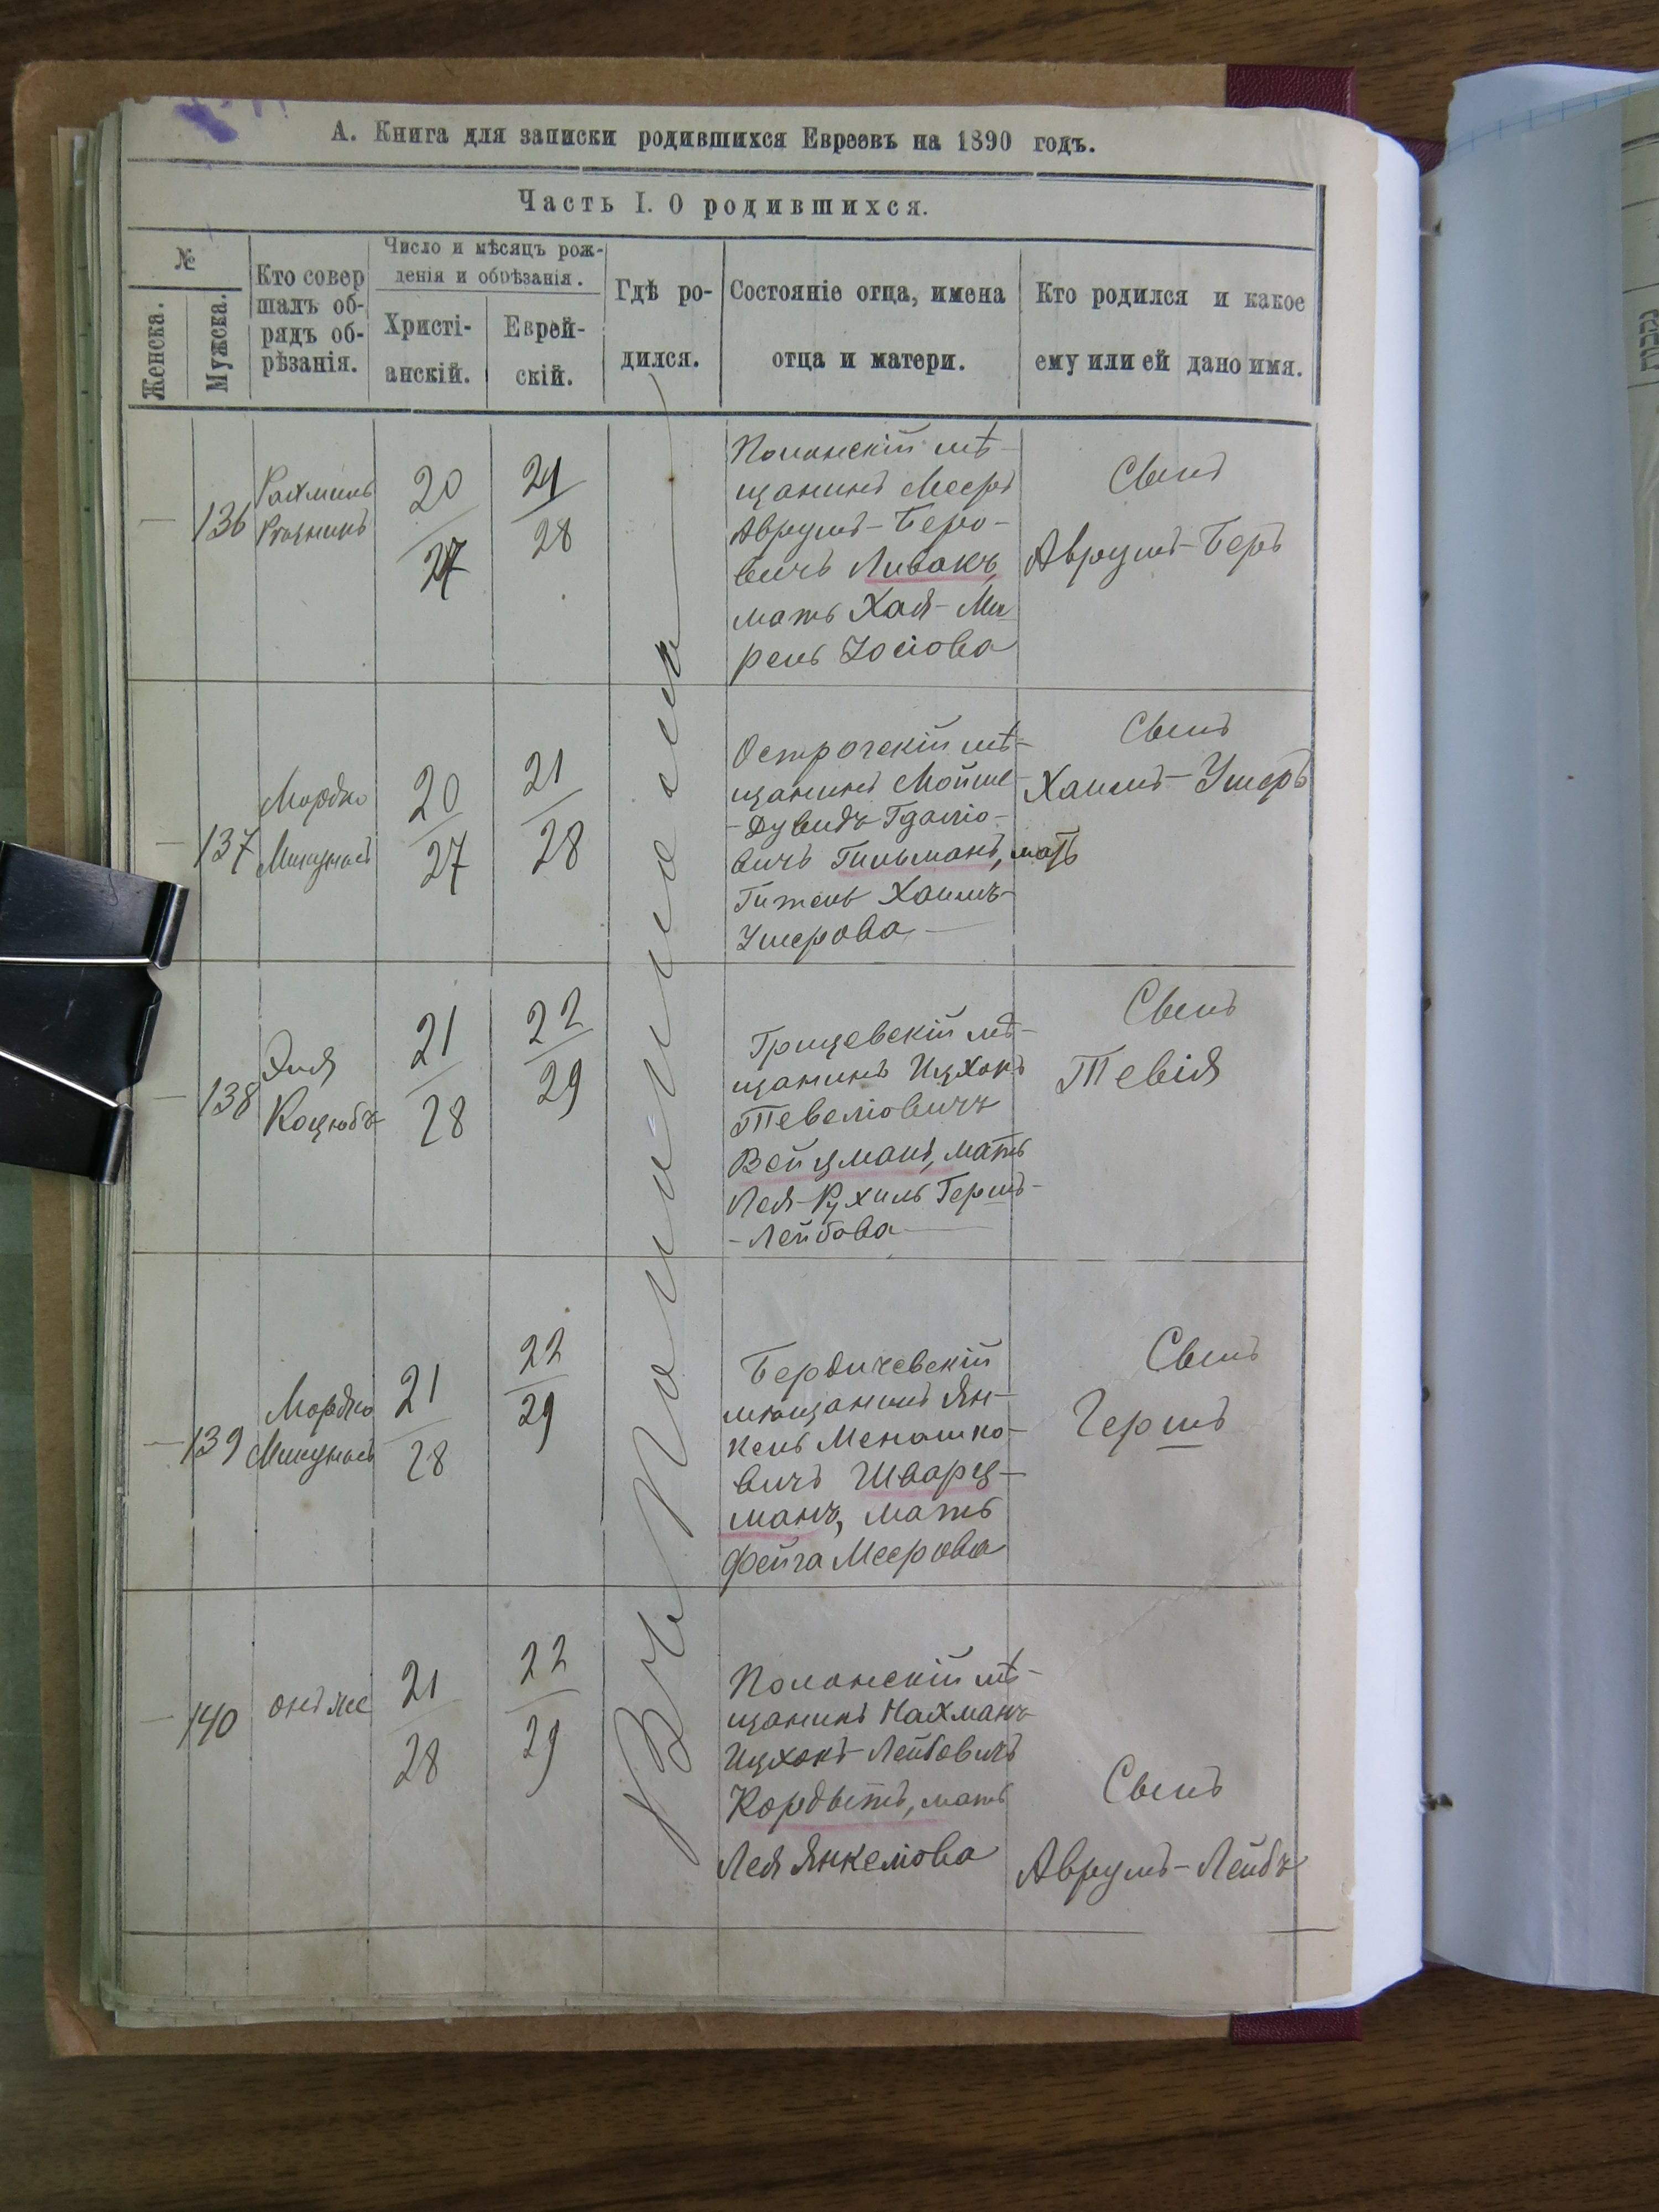 А. Книга для записки родившихся Евреевъ на 1890 годъ.
Часть I. О родившихся.
№
Женска.
Мужска.
Кто совер
шалъ об-
рядъ об-
рѣзанія.
Число и мѣсяцъ рож-
денія и обрѣзанія.
Христі-
анскій.
Еврей-
скій.
Гдѣ ро-
дился.
Состояніе отца, имена
отца и матери.
Кто родился и какое
ему или ей дано имя.
—
136
Рахминъ
20
27
21
28
Полонскій мѣ-
щанинъ Мееръ
Аврумъ-Беро-
вичъ Ливакъ,
мать Хая-Ми
рель Іосіова
Сынъ
Аврумъ-Беръ
—
137
Мордко
20
27
21
28
Острогскій мѣ-
щанинъ Мойше
-Дувидъ Гдаліо-
вичъ Гильманъ, мать
Гитель Хаимъ-
Ушерова —
Сынъ
Хаимъ-Ушеръ
—
138
Эля
Коцюбъ
21
28
22
29
Грицевскій мѣ-
щанинъ Ицхокъ
Тевеліовичъ
Вейцманъ, мать
Лея-Рухиль Гершъ-
-Лейбова —
Сынъ
Тевія
—
139
Мордко
21
28
22
29
Бердичевскій
мѣщанинъ Ян-
кель Менашко-
вичъ Шварц-
манъ, мать
Фейга Меерова
Сынъ
Гершъ
—
140
онъ же
21
28
22
29
Полонскій мѣ-
щанинъ Нахманъ
Ицхокъ-Лейбовичъ
Кордытъ, мать
Лея Янкеліова
Сынъ
Аврумъ-Лейбъ
Въ